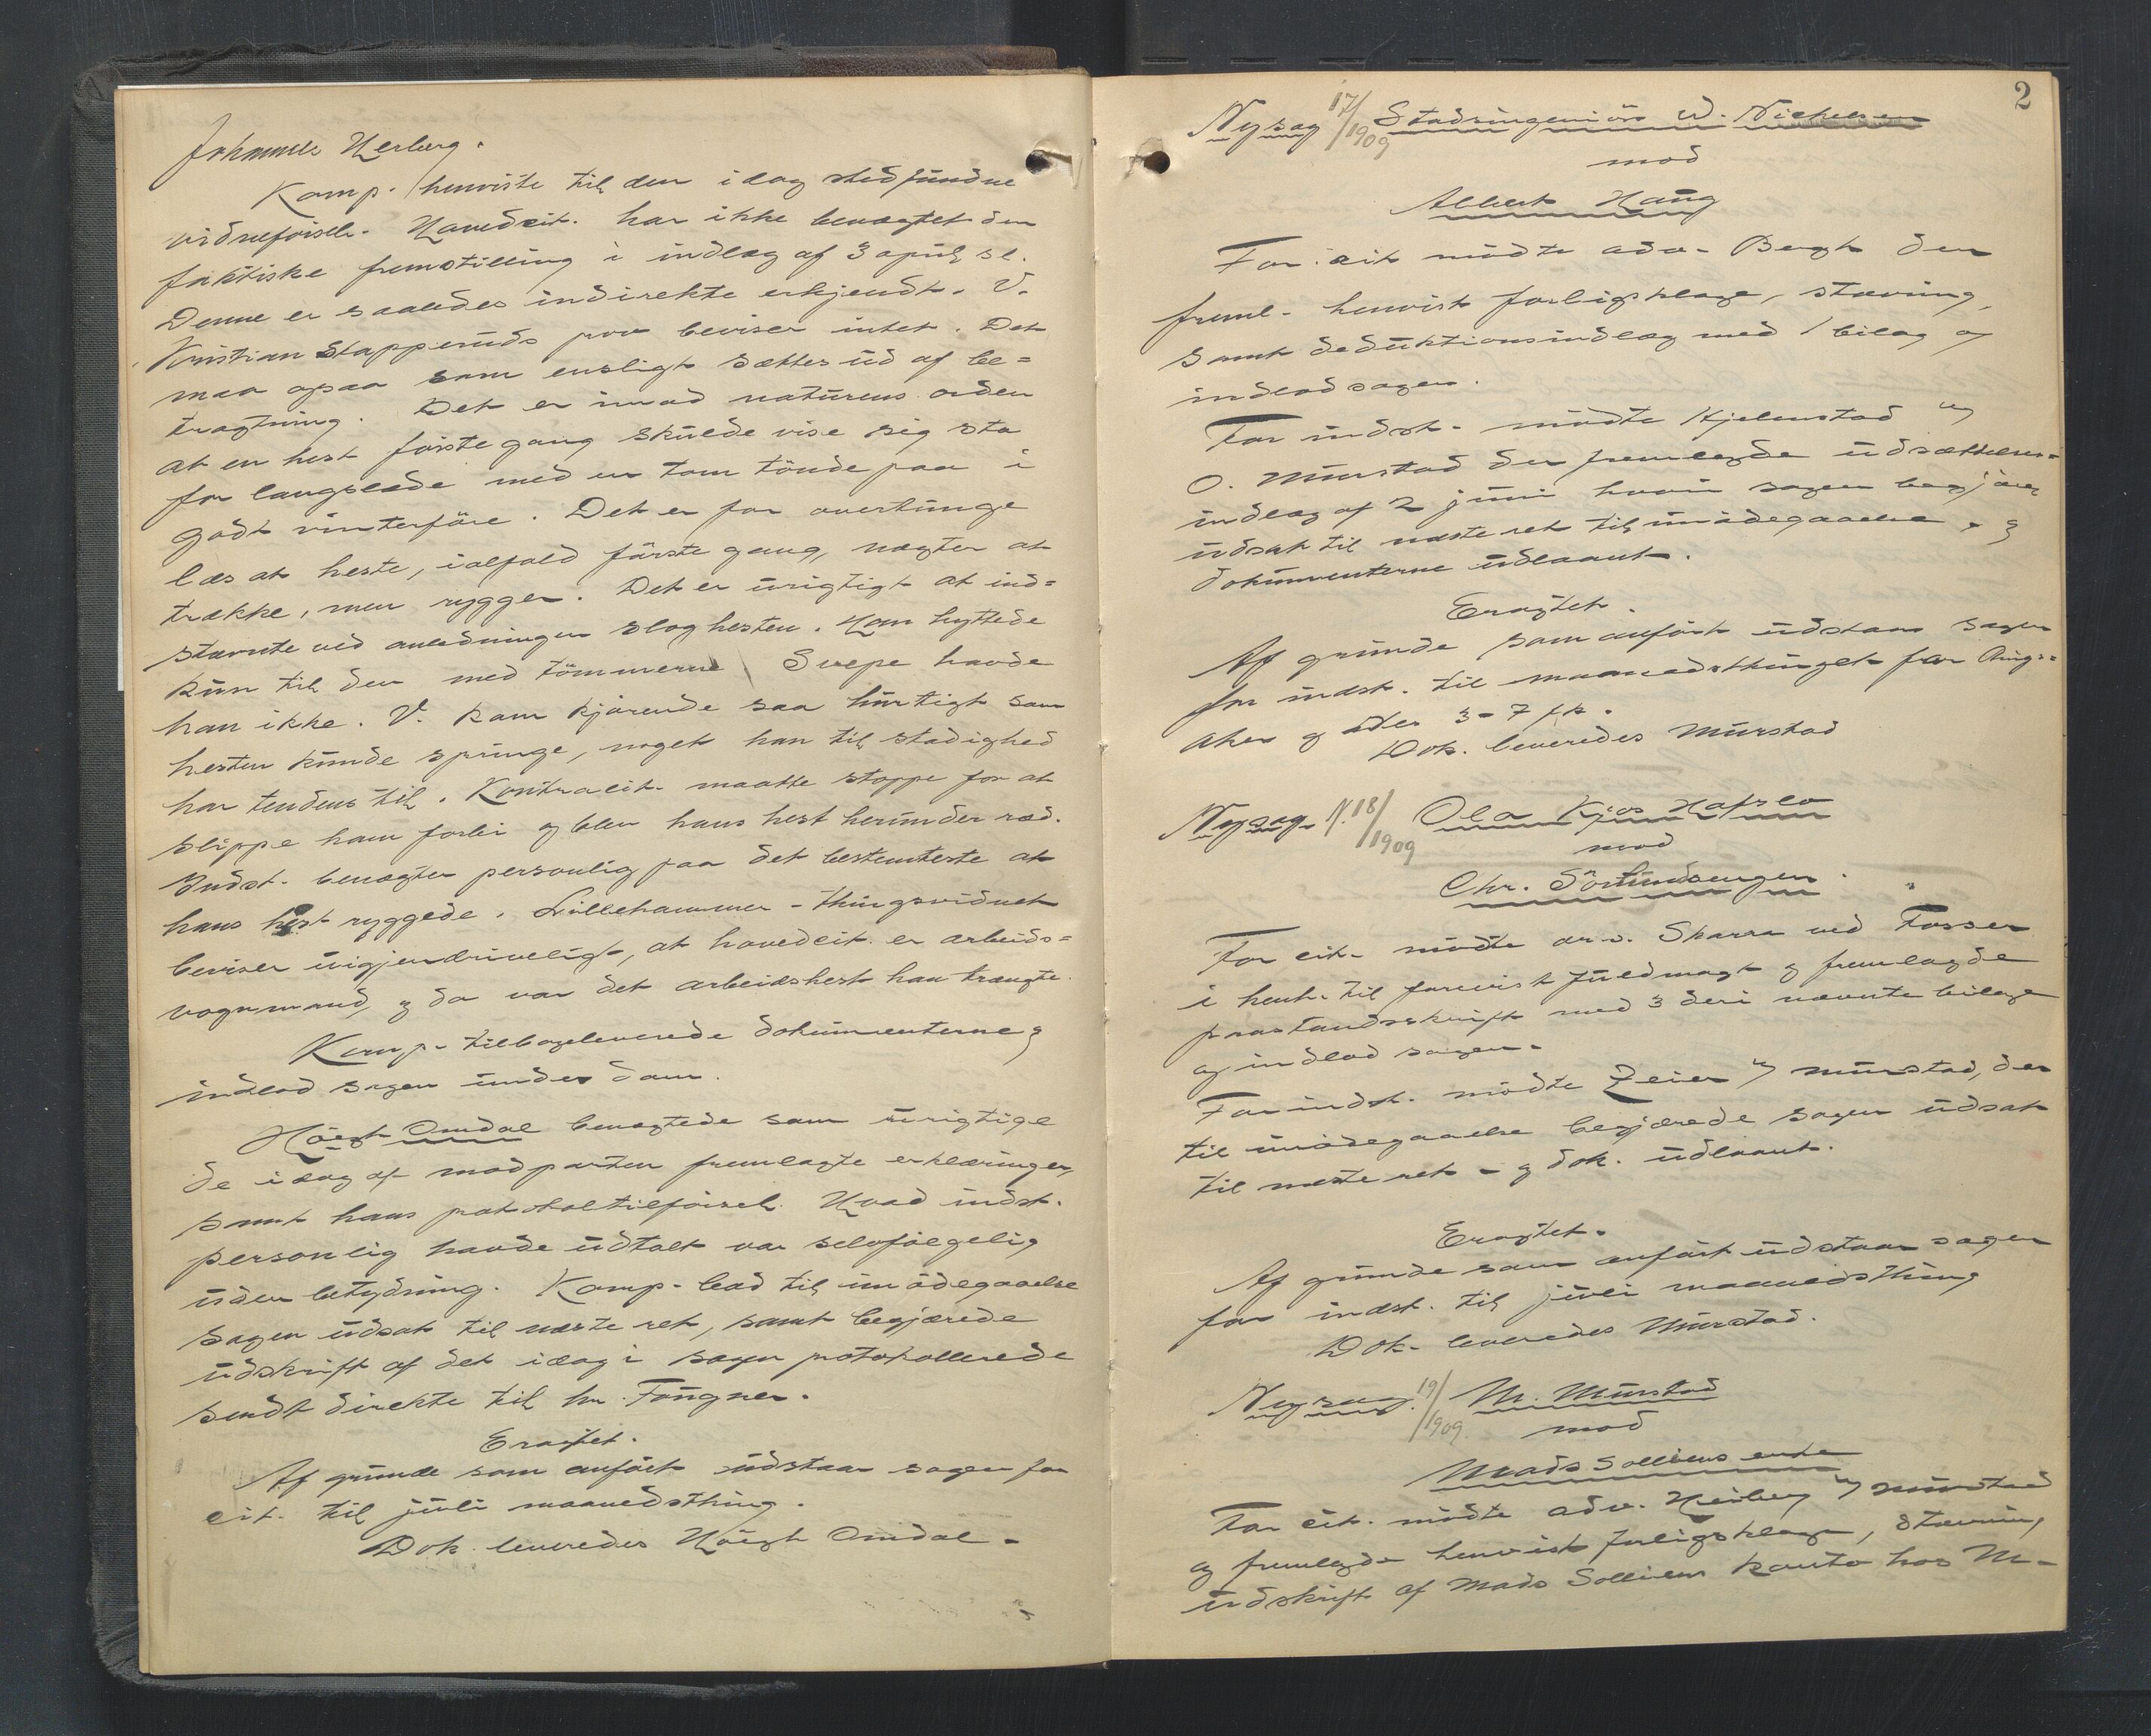 Johannes Herberg.
Komp. henviste til den idag stedfundne
vidneførsel. Hovedcit. har ikke benægtet den
faktiske fremstilling i indlæg af 3 april sl.
Denne er saaledes indirekte erkjendt. V.
Kristian Stapperuds prov beviser intet. Det
maa ogsaa som ensligt sættes ud af be=
tragtning. Det er imod naturens orden
at en hest første gang skulde vise sig sta
for langslæde med en tom tönde paa i
godt vinterföre. Det er for overtunge
læs at heste, ialfald förste gang, nægter at
trække, men rygger. Det er urigtigt at ind=
stævnte ved anledningen slog hesten. Han hyttede
kun til den med tömmerne. Svepe havde
han ikke. V. kom kjørende saa hurtigt som
hesten kunde springe, noget han til stadighed
har tendens til. Kontracit. maatte stoppe for at
slippe ham forbi og blev hans hest herunder ræd.
Indst. benægter personlig paa det bestemteste at
hans hest ryggede. Lillehammer-thingsvidnet
beviser uigjendriveligt, at hovedcit. er arbeids=
vognmand, og da var det arbeidshest han trængte.
Komp. tilbageleverede dokumenterne og
indlod sagen under dom.
Høegh Omdal benægtede som urigtige
de idag af modparten fremlagte erklæringer,
samt hans protokoltilførsel. Hvad indst.
personlig havde udtalt var selvfølgelig
uden betydning. Komp. bad til imödegaaelse
sagen udsat til næste ret, samt begjærede
udskrift af det idag i sagen protokollerede
sendt direkte til hr. Fougner.
Eragtet.
Af grunde som anført udstaar sagen for
cit. til juli maanedsthing.
Dok. leveredes Høegh Omdal.
2
Ny sag 17/1909 Stadsingeniör W. Nickelsen
mod
Albert Haug
For cit mødte adv. Bergh der
freml. henvist forligsklage, stævning,
samt deduktionsindlæg med 1 bilag og
indlod sagen.
For indst. mødte Hjelmstad v/
O. Murstad der fremlagde udsættelses=
indlæg af 2 juni hvori sagen begjæres
udsat til næste ret til imødegaaelse, og
dokumenterne udlaant.
Eragtet.
Af grunde som anført udstaar sagen
for indst. til maanedsthinget for Rings=
aker og den 3-7 fk.
Dok. leveredes Murstad
Ny sag N. 18/1909 Ola Kjos Hafslo
mod
Chr. Sörlundsengen.
For cit. mødte ov. Skarra ved Fosser
i henh. til forevist fuldmagt og fremlagde
paastandsskrift med 3 deri nævnte bilage
og indlod sagen.
For indst. mødte Zeier v/ Murstad, der
til imødegaaelse begjærede sagen udsat
til næste ret - og dok. udlaant.
Eragtet.
Af grunde som anført udstaar sagen
for indst. til juli maanedsthing
Dok. leveredes Murstad.
Ny sag. 19/1909. M. Murstad
mod
Mads Solliens enke
For cit. mødte adv. Heiberg v/ Murstad
og fremlagde henvist forligsklage, stævning
udskrift af Mads Solliens konto hos M-